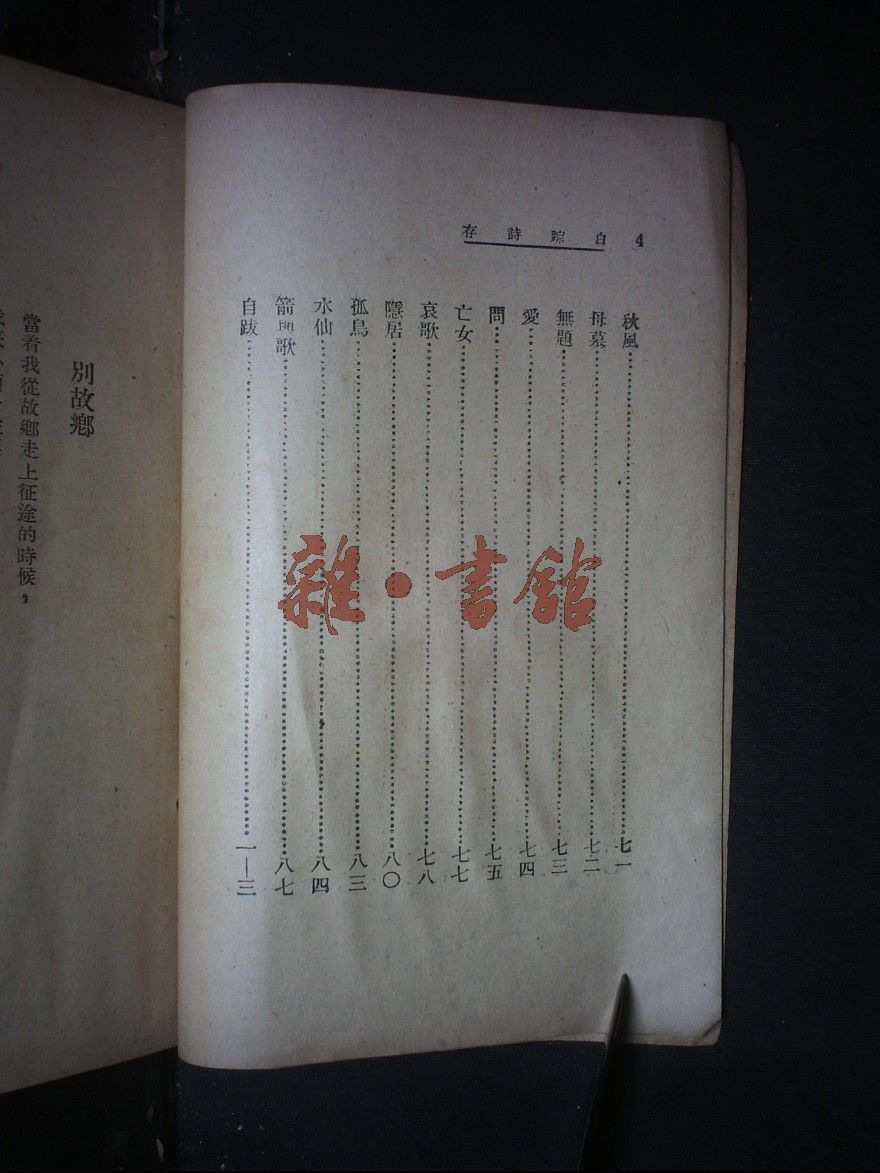 4 白踪詩存
秋風……七一
母墓……七二
無題……七三
愛……七四
問……七五
亡女……七七
哀歌……七八
隱居……八〇
孤鳥……八三
水仙……八四
箭 歌……八七
自跋……一—三
別故鄉
當着我從故鄉走上征途的時候，
雜·書館